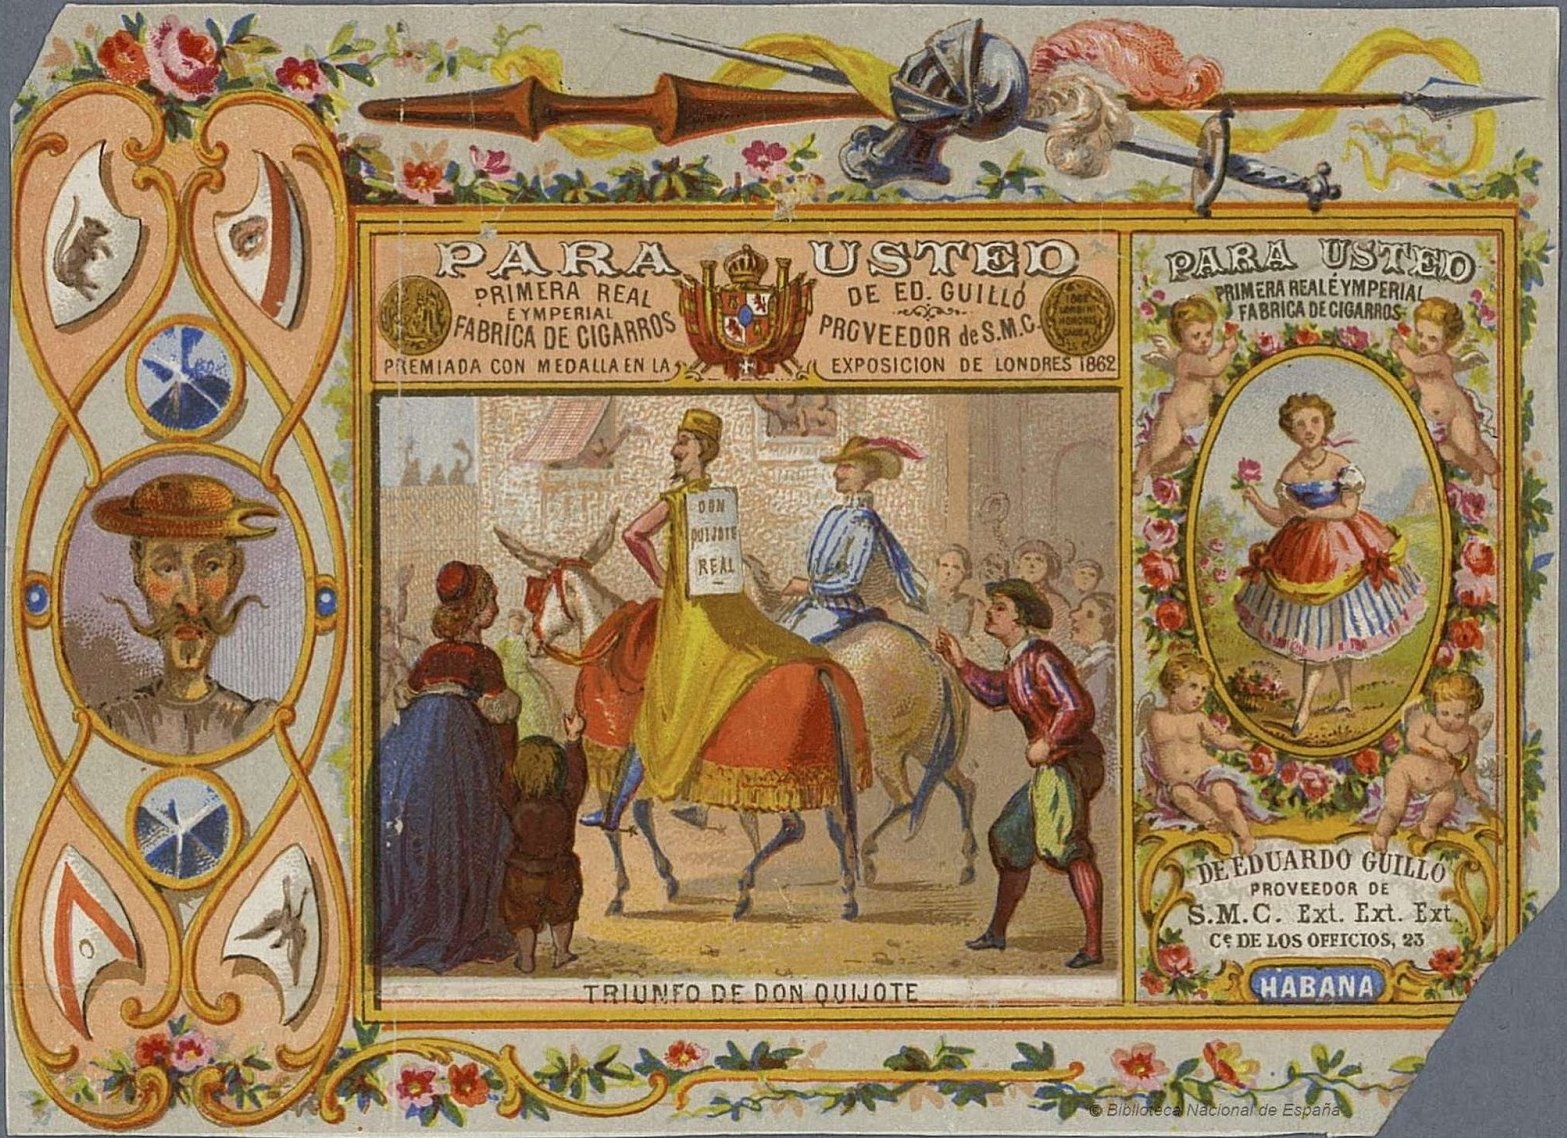 PARA USTED
PRIMERA REAL
E YMPERIAL
FABRICA DE CIGARROS
PREMIADA CON MEDALLA EN LA
DE ED. GUILLÓ
PROVEEDOR de S.M.C.
EXPOSICION DE LONDRES 1862
1862
LONDINI
HONORIS
CAUSA
DON
QUIJOTE
REAL
TRIUNFO DE DON QUIJOTE
PARA USTED
PRIMERA REAL É YMPERIAL
FABRICA DE CIGARROS
DE EDUARDO GUILLÓ
PROVEEDOR DE
S.M.C. Ext. Ext. Ext.
Ce DE LOS OFFICIOS, 23
HABANA
© Biblioteca Nacional de España